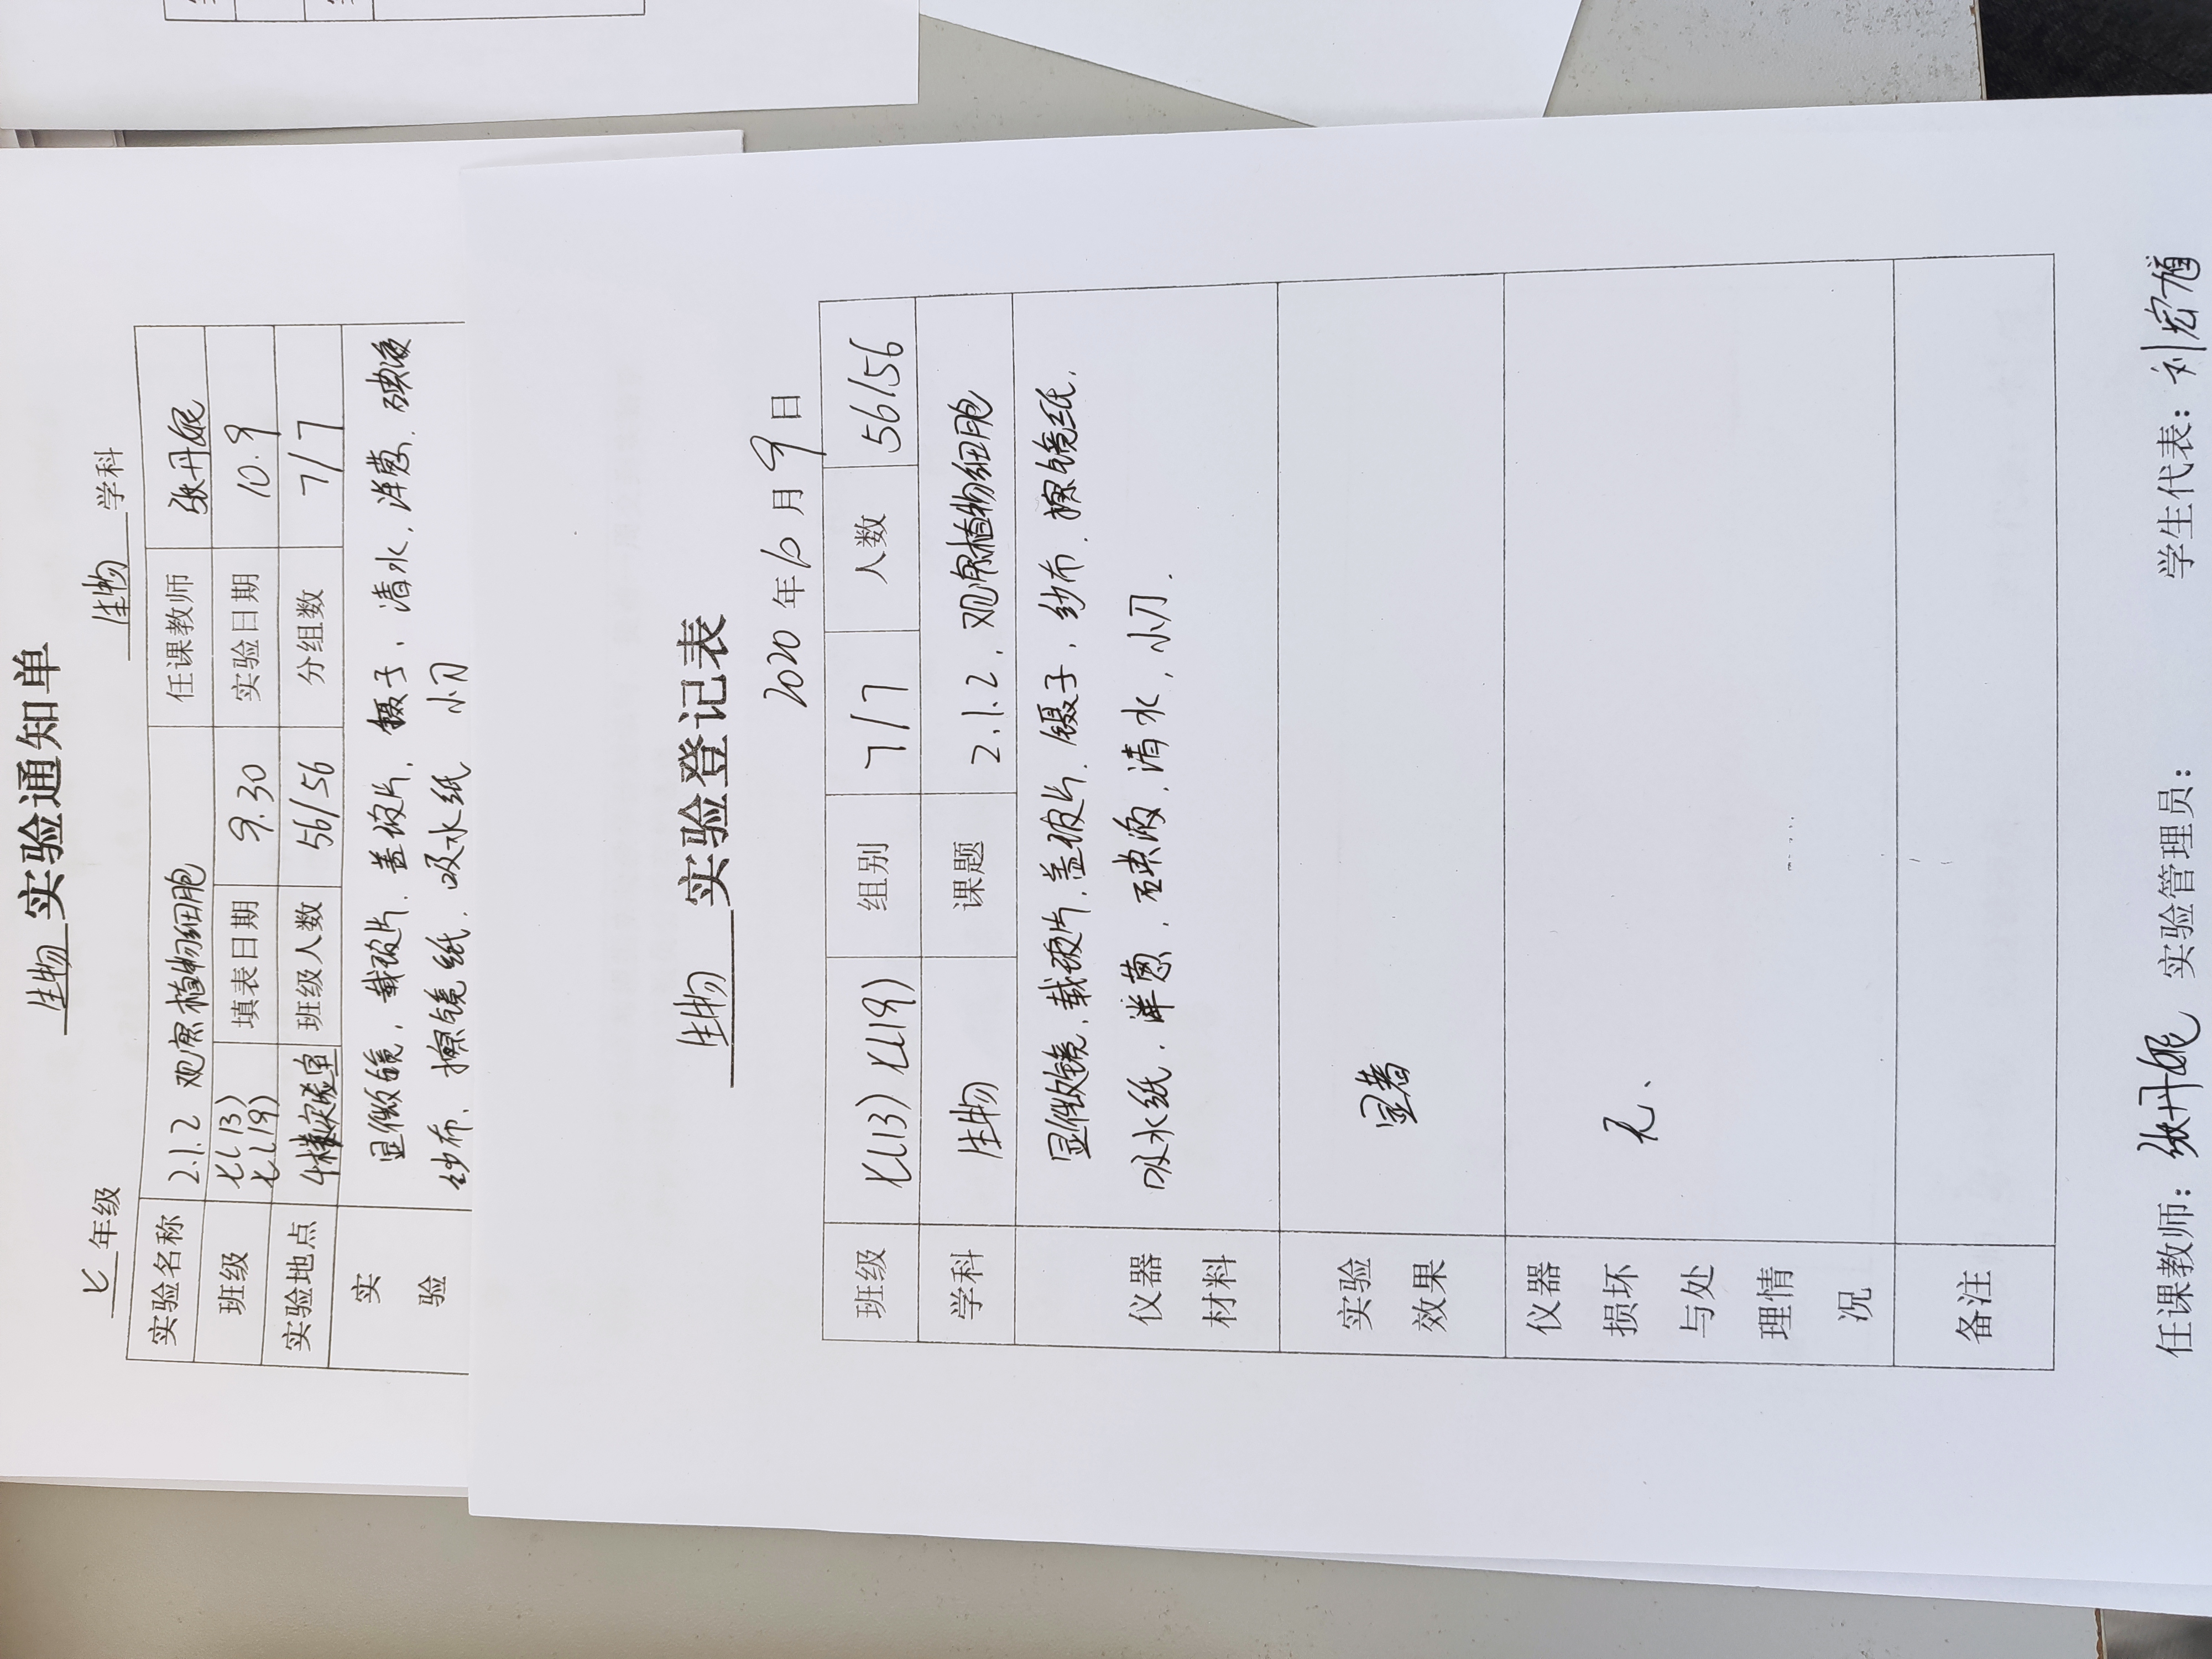 生物 实验通知单
七 年级 生物 学科
实验名称 2.1.2 观察植物细胞 任课教师 张丹妮
班级 七(13) 七(19) 填表日期 9.30 实验日期 10.9
实验地点 4楼实验室 班级人数 56/56 分组数 7/7
实 显微镜,载玻片、盖玻片,镊子,清水,洋葱,碘液
验 纱布、擦镜纸、吸水纸 小刀
生物 实验登记表
2020 年 10 月 9 日
班级 七(13) 七(19) 组别 7/7 人数 56/56
学科 生物 课题 2.1.2,观察植物细胞
显微镜,载玻片,盖玻片,镊子,纱布,擦镜纸,
仪器 吸水纸,洋葱,碘液,清水,小刀.
材料
实验 显著
效果
仪器
损坏 无、
与处
理情
况
备注
任课教师:张丹妮 实验管理员: 学生代表:刘宏